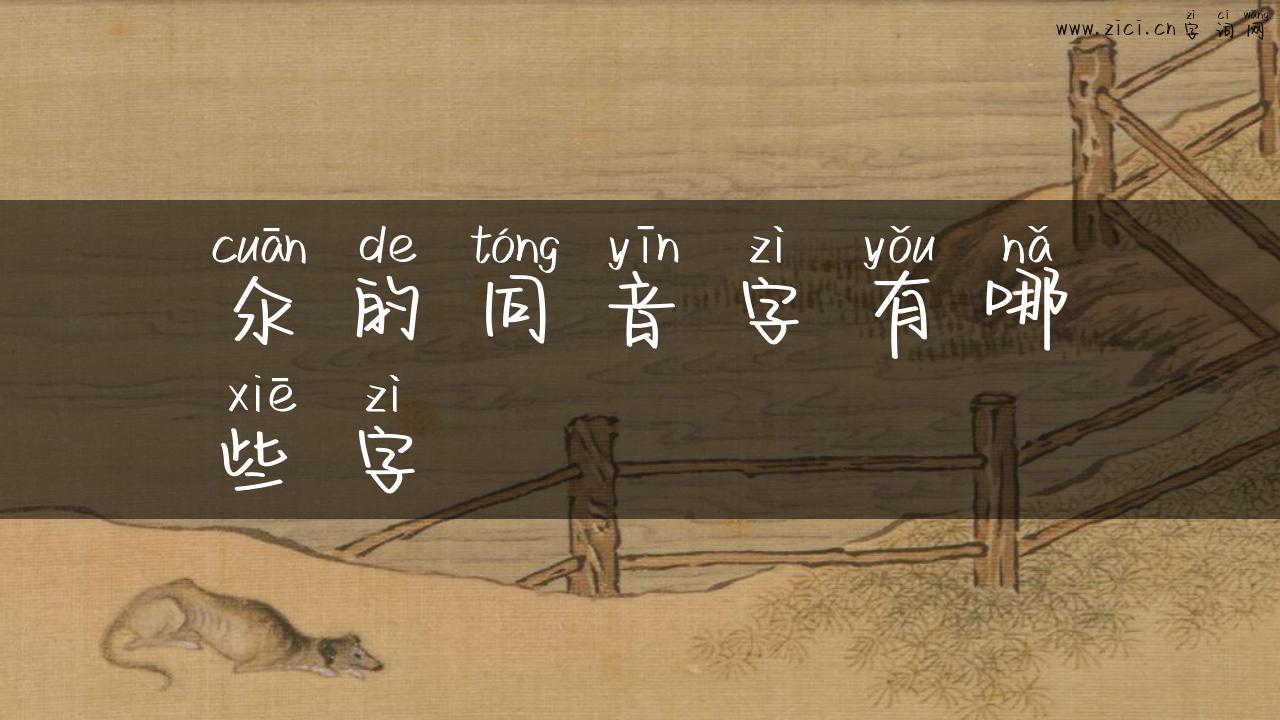 zì cí wǎng
www.zici.cn字词网
cuān de tóng yīn zì yǒu nǎ
汆的同音字有哪
xiē zì
些字